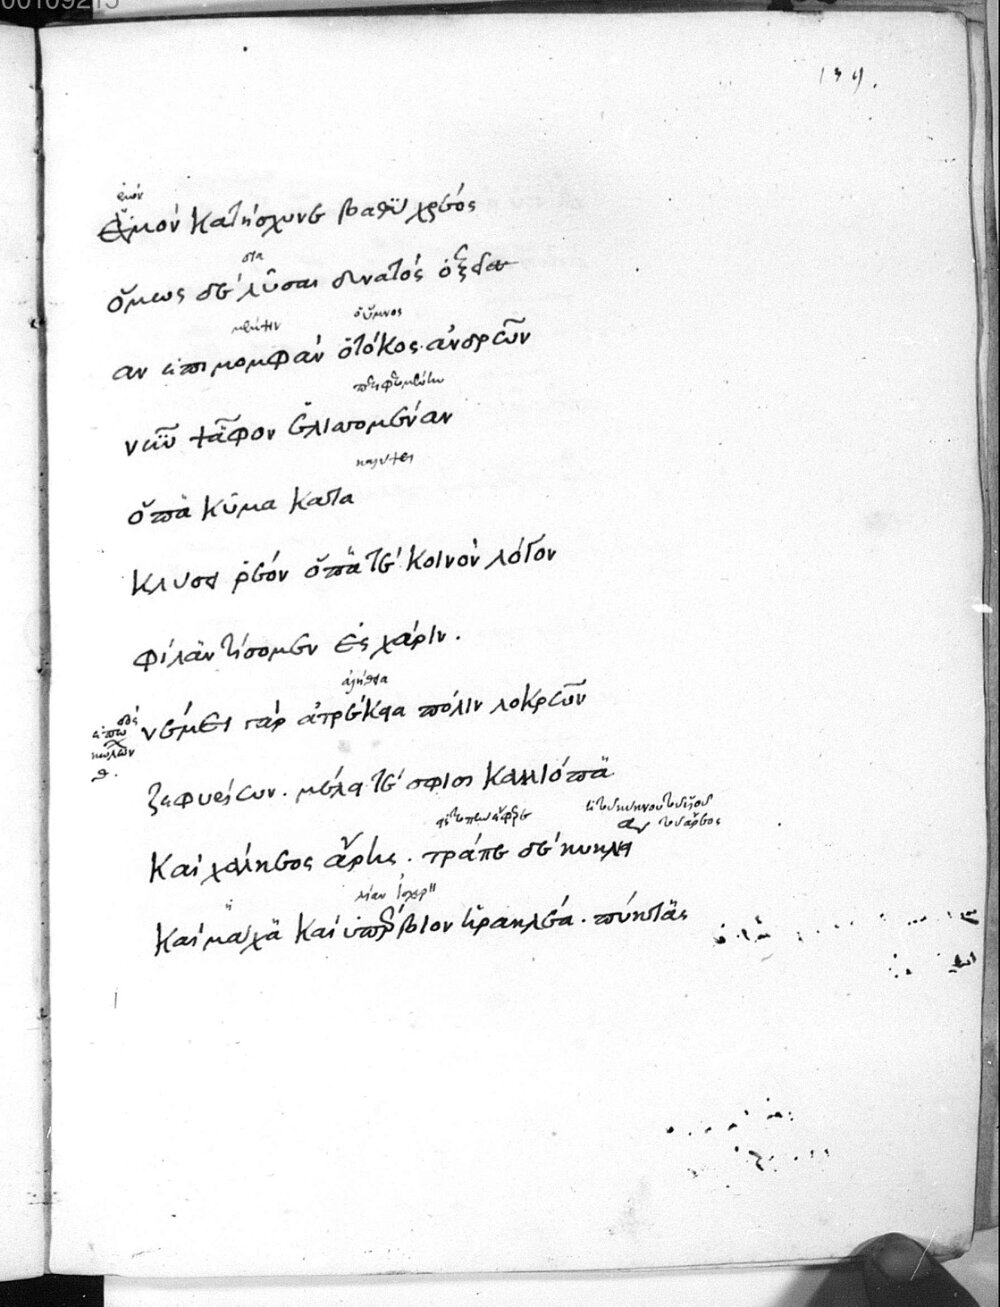 00109215
139.
ἐμόν
ἐμὸν καταίσχυνε βαθὺ χρέος
ὅμως δὲ λῦσαι δυνατὸς ὀξεῖαν
μέμψιν ὁ ὕμνος
αν ἐπιμομφὰν ὁ τόκος ἀνδρῶν
νῦν ψᾶφον ἑλισσομέναν
καλύψει
ὅπα κῦμα κατα
κλύσει ῥέον ὅπα τε κοινὸν λόγον
φίλαν τίσομεν ἐς χάριν.
ἀλήθεια
νέμει γὰρ ἀτρέκεια πόλιν λοκρῶν
ἐπῳδός
κώλων
θ.
ζεφυρίων. μέλει τέ σφισι καλλιόπα
καὶ χάλκεος ἄρης. τράπε δὲ κύκνεια
λίαν ἰσχυρ
καὶ μάχα καὶ ὑπέρβιον ἡρακλέα. πύκτας